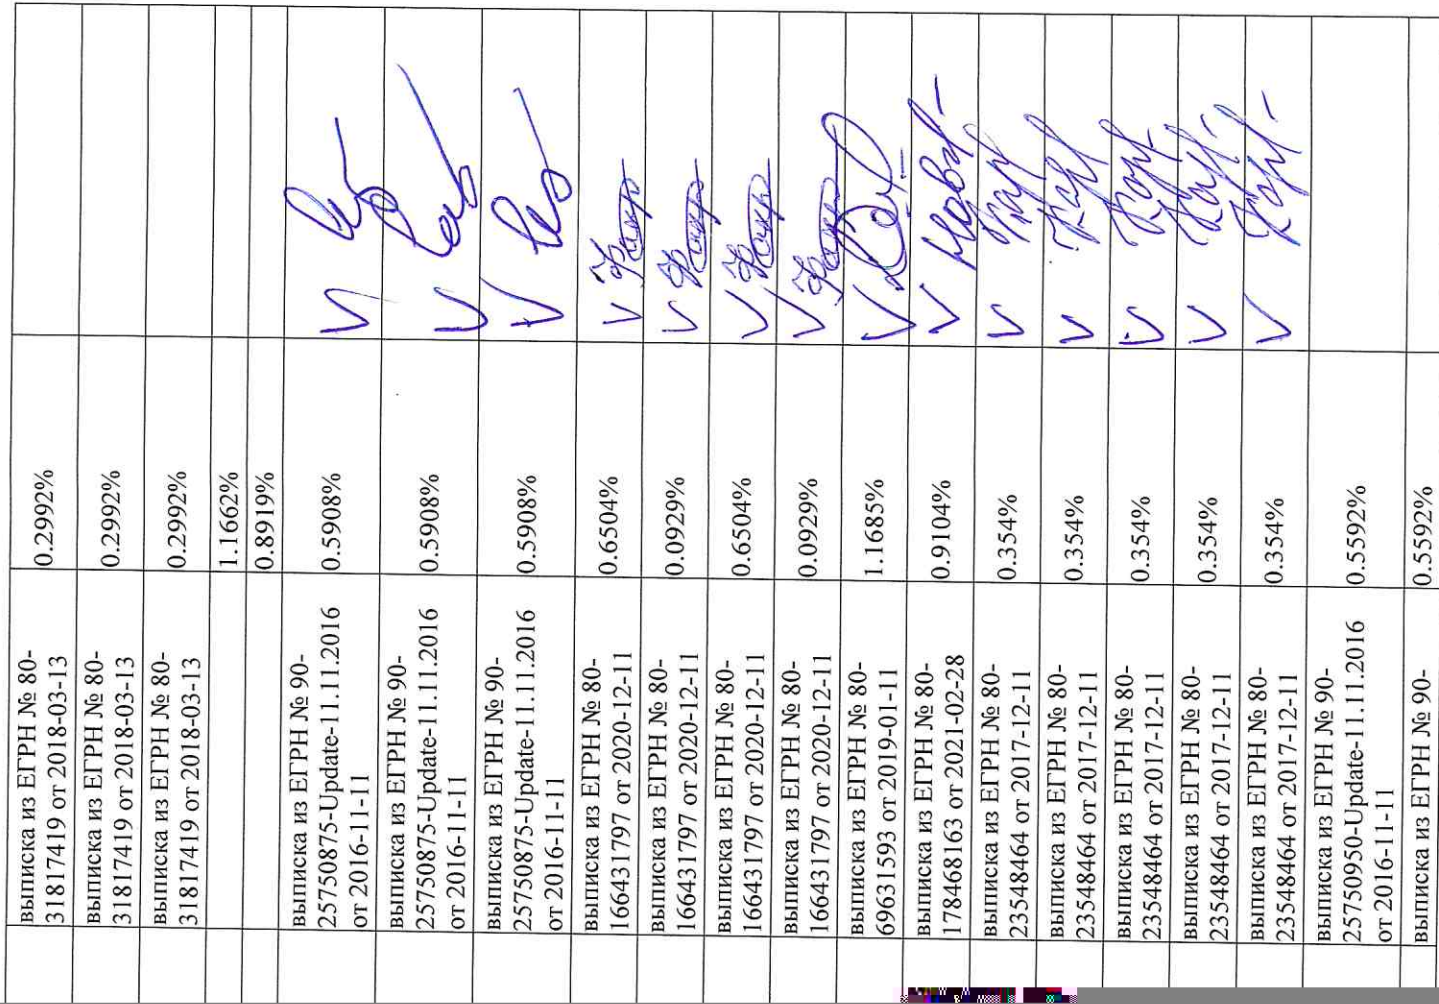 выписка из ЕГРН № 80-
31817419 от 2018-03-13
0.2992%
выписка из ЕГРН № 80-
31817419 от 2018-03-13
0.2992%
выписка из ЕГРН № 80-
31817419 от 2018-03-13
0.2992%
1.1662%
0.8919%
выписка из ЕГРН № 90-
25750875-Update-11.11.2016
от 2016-11-11
0.5908%
V
выписка из ЕГРН № 90-
25750875-Update-11.11.2016
от 2016-11-11
0.5908%
V
выписка из ЕГРН № 90-
25750875-Update-11.11.2016
от 2016-11-11
0.5908%
V
выписка из ЕГРН № 80-
166431797 от 2020-12-11
0.6504%
V
выписка из ЕГРН № 80-
166431797 от 2020-12-11
0.0929%
V
выписка из ЕГРН № 80-
166431797 от 2020-12-11
0.6504%
V
выписка из ЕГРН № 80-
166431797 от 2020-12-11
0.0929%
V
выписка из ЕГРН № 80-
69631593 от 2019-01-11
1.1685%
V
выписка из ЕГРН № 80-
178468163 от 2021-02-28
0.9104%
V
выписка из ЕГРН № 80-
23548464 от 2017-12-11
0.354%
V
выписка из ЕГРН № 80-
23548464 от 2017-12-11
0.354%
V
выписка из ЕГРН № 80-
23548464 от 2017-12-11
0.354%
V
выписка из ЕГРН № 80-
23548464 от 2017-12-11
0.354%
V
выписка из ЕГРН № 80-
23548464 от 2017-12-11
0.354%
V
выписка из ЕГРН № 90-
25750950-Update-11.11.2016
от 2016-11-11
0.5592%
выписка из ЕГРН № 90-
0.5592%